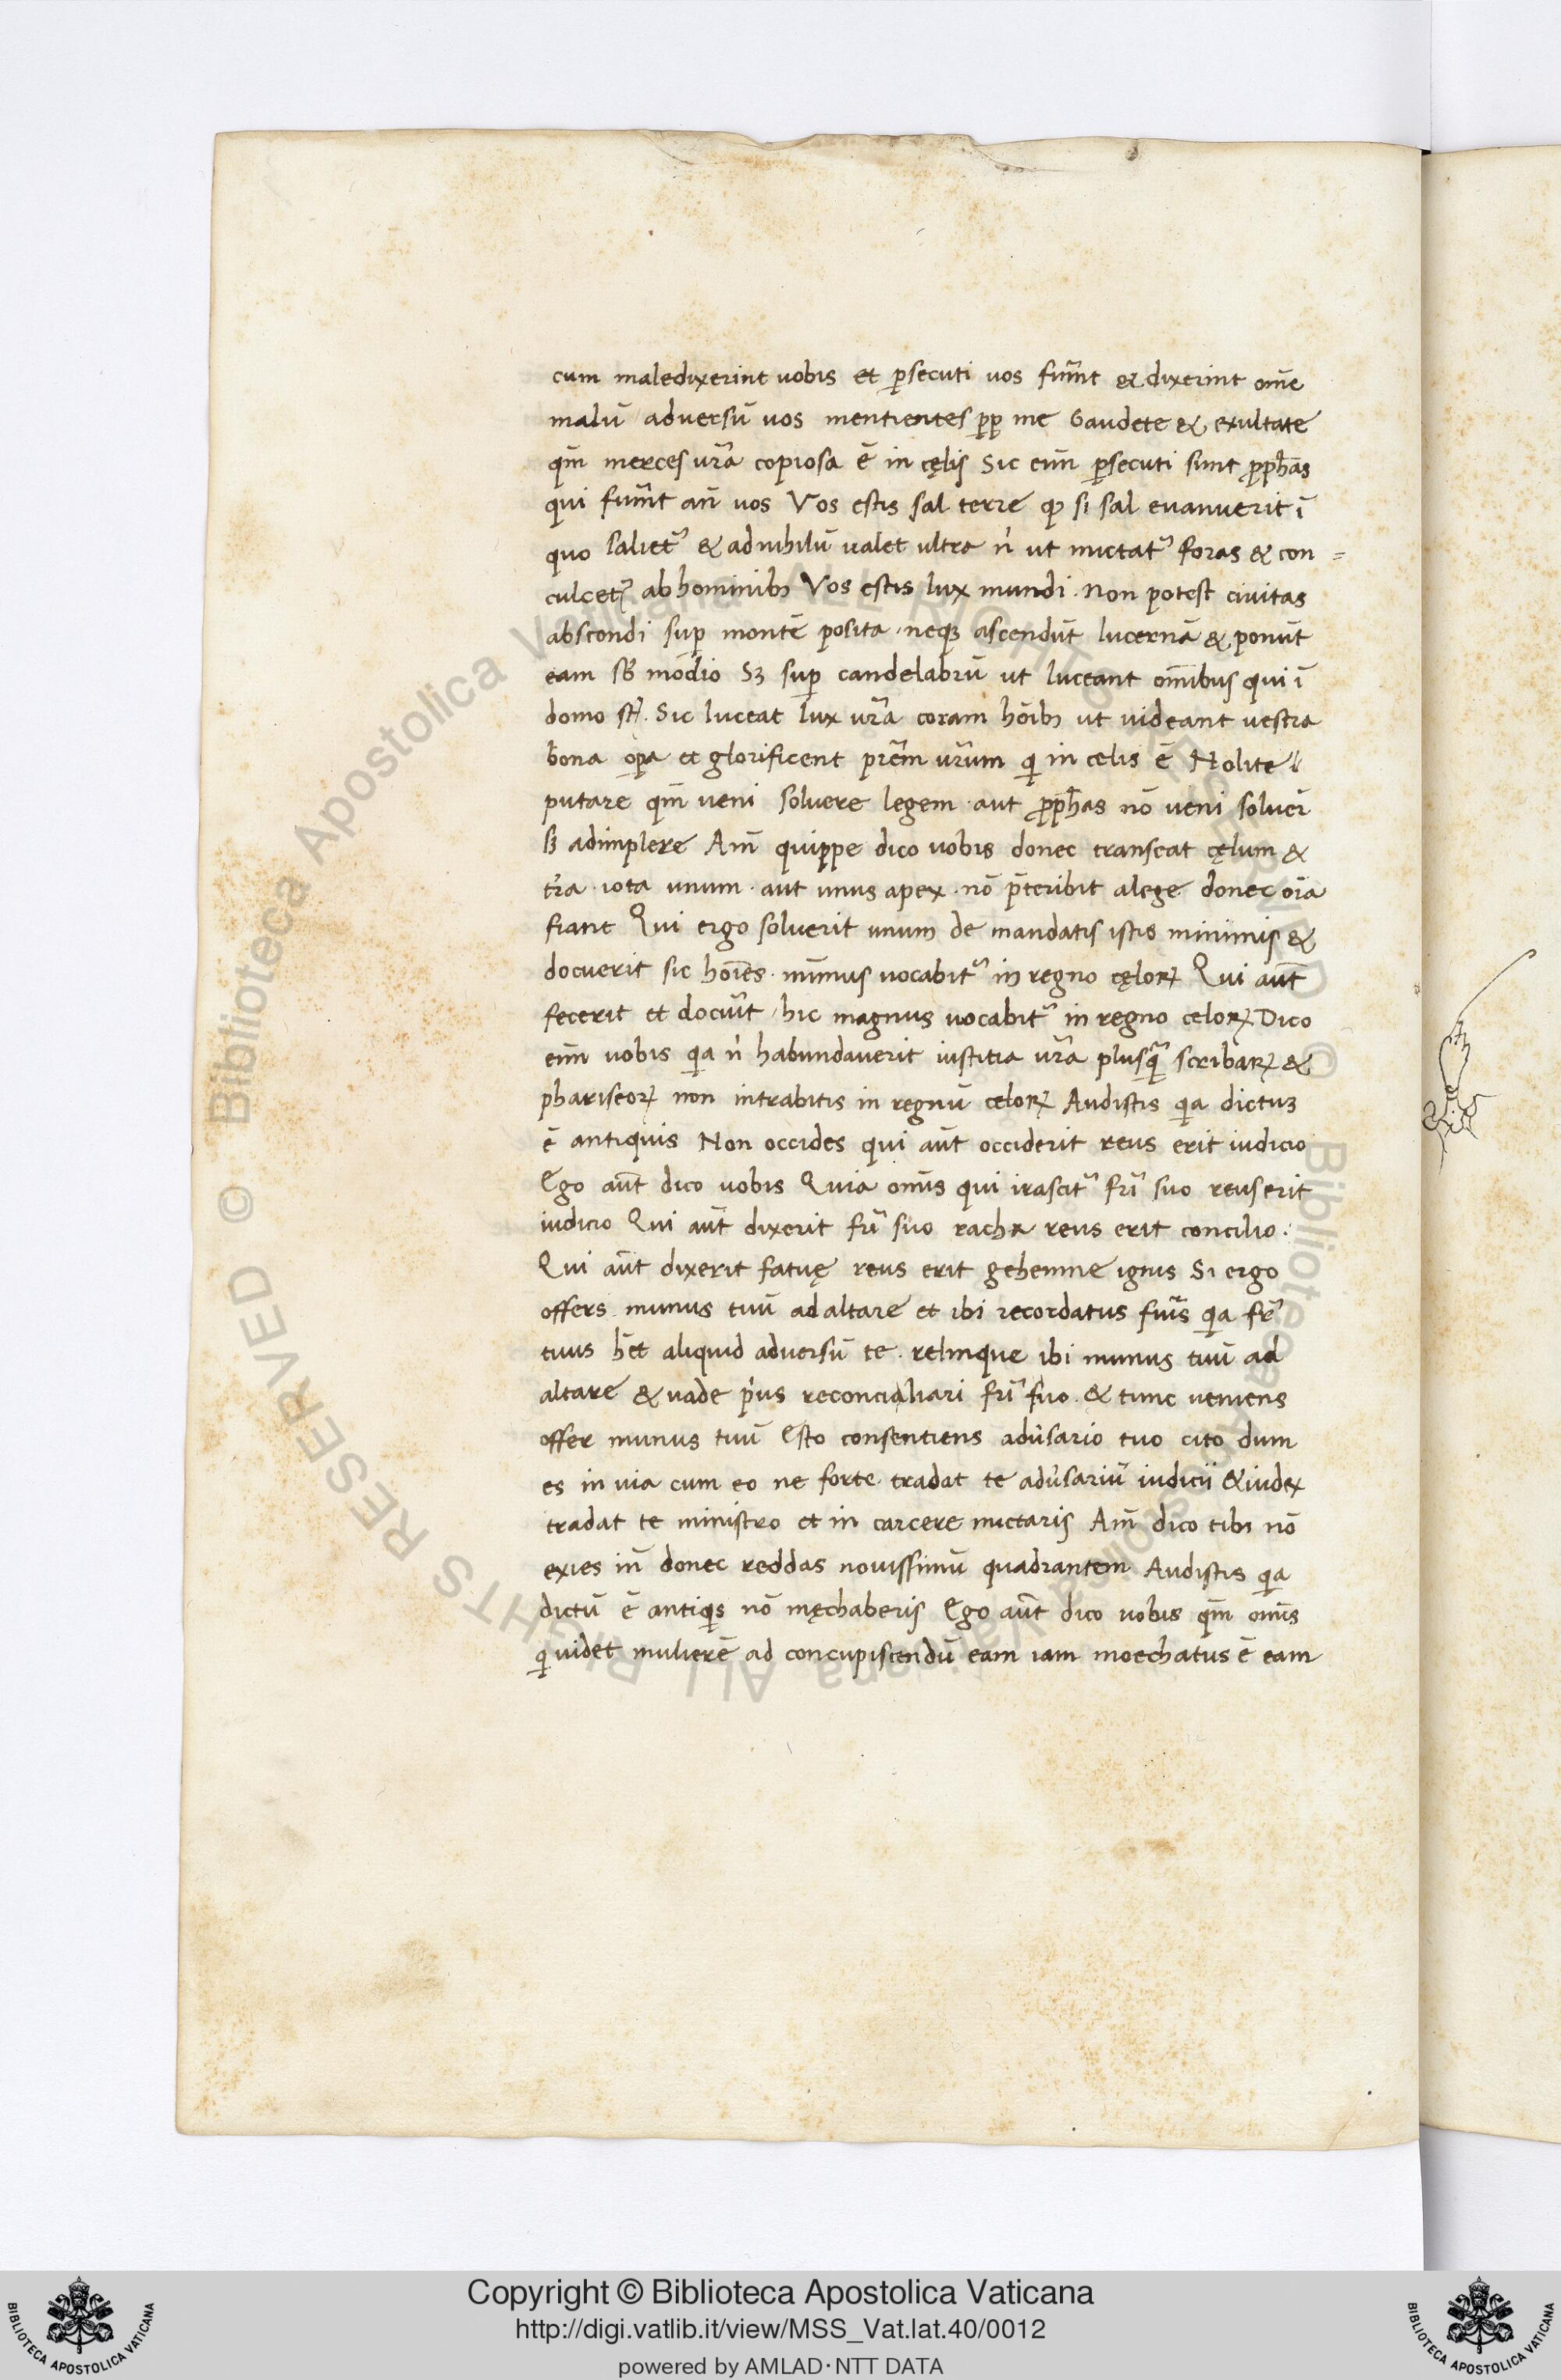 cum maledixerint uobis et ꝑsecuti uos fuint̄ & dixerint om̄e
malū adversū uos mentientes ꝓꝑ me Gaudete & exultate
qm̄ merces ur̄a copiosa ē in cęlis Sic eim̄ ꝑsecuti sunt ꝓph̄as
qui fuint̄ an̄ uos Vos estis sal terre qͦ si sal euanuerit ī
quo salietᷣ & ad nihilū ualet ultra n̄ ut mictatᷣ foras & con=
culcetᷣ ab hominibꝫ Vos estis lux mundi. Non potest ciuitas
abscondi suꝑ montē posita. neqꝫ ascendūt lucernā & ponūt
eam sƀ modio Sꝫ suꝑ candelabrū ut luceant om̄ibus qui ī
domo st̄. Sic luceat lux ur̄a coram hōibꝫ ut uideant uestra
bona oꝑa et glorificent prēm ur̄um qͥ in celis ē Nolite
putare qm̄ ueni soluere legem aut ꝓph̄as nō ueni soluer̄
sꝫ adimplere Am̄ quippe dico uobis donec transeat cęlum &
tr̄a. iota unum. aut unus apex. nō p̄teribit alege donec oīa
fiant Qui ergo soluerit unum de mandatis istis minimis &
docuerit sic hoīes. minimus uocabitᷣ in regno cęloꝝ Qui aūt
fecerit et docuīt hic magnus uocabitᷣ in regno celoꝝ Dico
eim̄ uobis qͥa n̄ habundauerit iustitia ur̄a plusqᷓ scribaꝝ &
phariseoꝝ non intrabitis in regnū celoꝝ Audistis qͥa dictuꝫ
ē antiquis Non occides qui aūt occiderit reus erit iudicio
Ego aūt dico uobis Quia om̄s qui irascitᷣ fr̄i suo reus erit
iudicio Qui aūt dixerit fr̄i suo racha reus erit concilio.
Qui aūt dixerit fatuę reus erit gehenne ignis Si ergo
offers munus tuū ad altare et ibi recordatus fuīs qͥa fr̄
tuus hēt aliquid adversū te. relinque ibi munus tuū ad
altare & uade pͥus reconcialiari fr̄i suo. & tunc ueniens
offer munus tuū Esto consentiens adūsario tuo cito dum
es in uia cum eo ne forte tradat te adūsariū iudicii & iudex
tradat te ministro et in carcere mictaris Am̄ dico tibi nō
exies in̄ donec reddas nouissimū quadrantem Audistis qͥa
dictū ē antiqͥs nō męchaberis Ego aūt dico uobis qm̄ om̄s
qͥ uidet mulierē ad concupiscendū eam iam moechatus ē eam
Copyright © Biblioteca Apostolica Vaticana
http://digi.vatlib.it/view/MSS_Vat.lat.40/0012
powered by AMLAD·NTT DATA
BIBLIOTECA APOSTOLICA VATICANA
BIBLIOTECA APOSTOLICA VATICANA
© Biblioteca Apostolica Vaticana ALL RIGHTS RESERVED
© Biblioteca Apostolica Vaticana ALL RIGHTS RESERVED